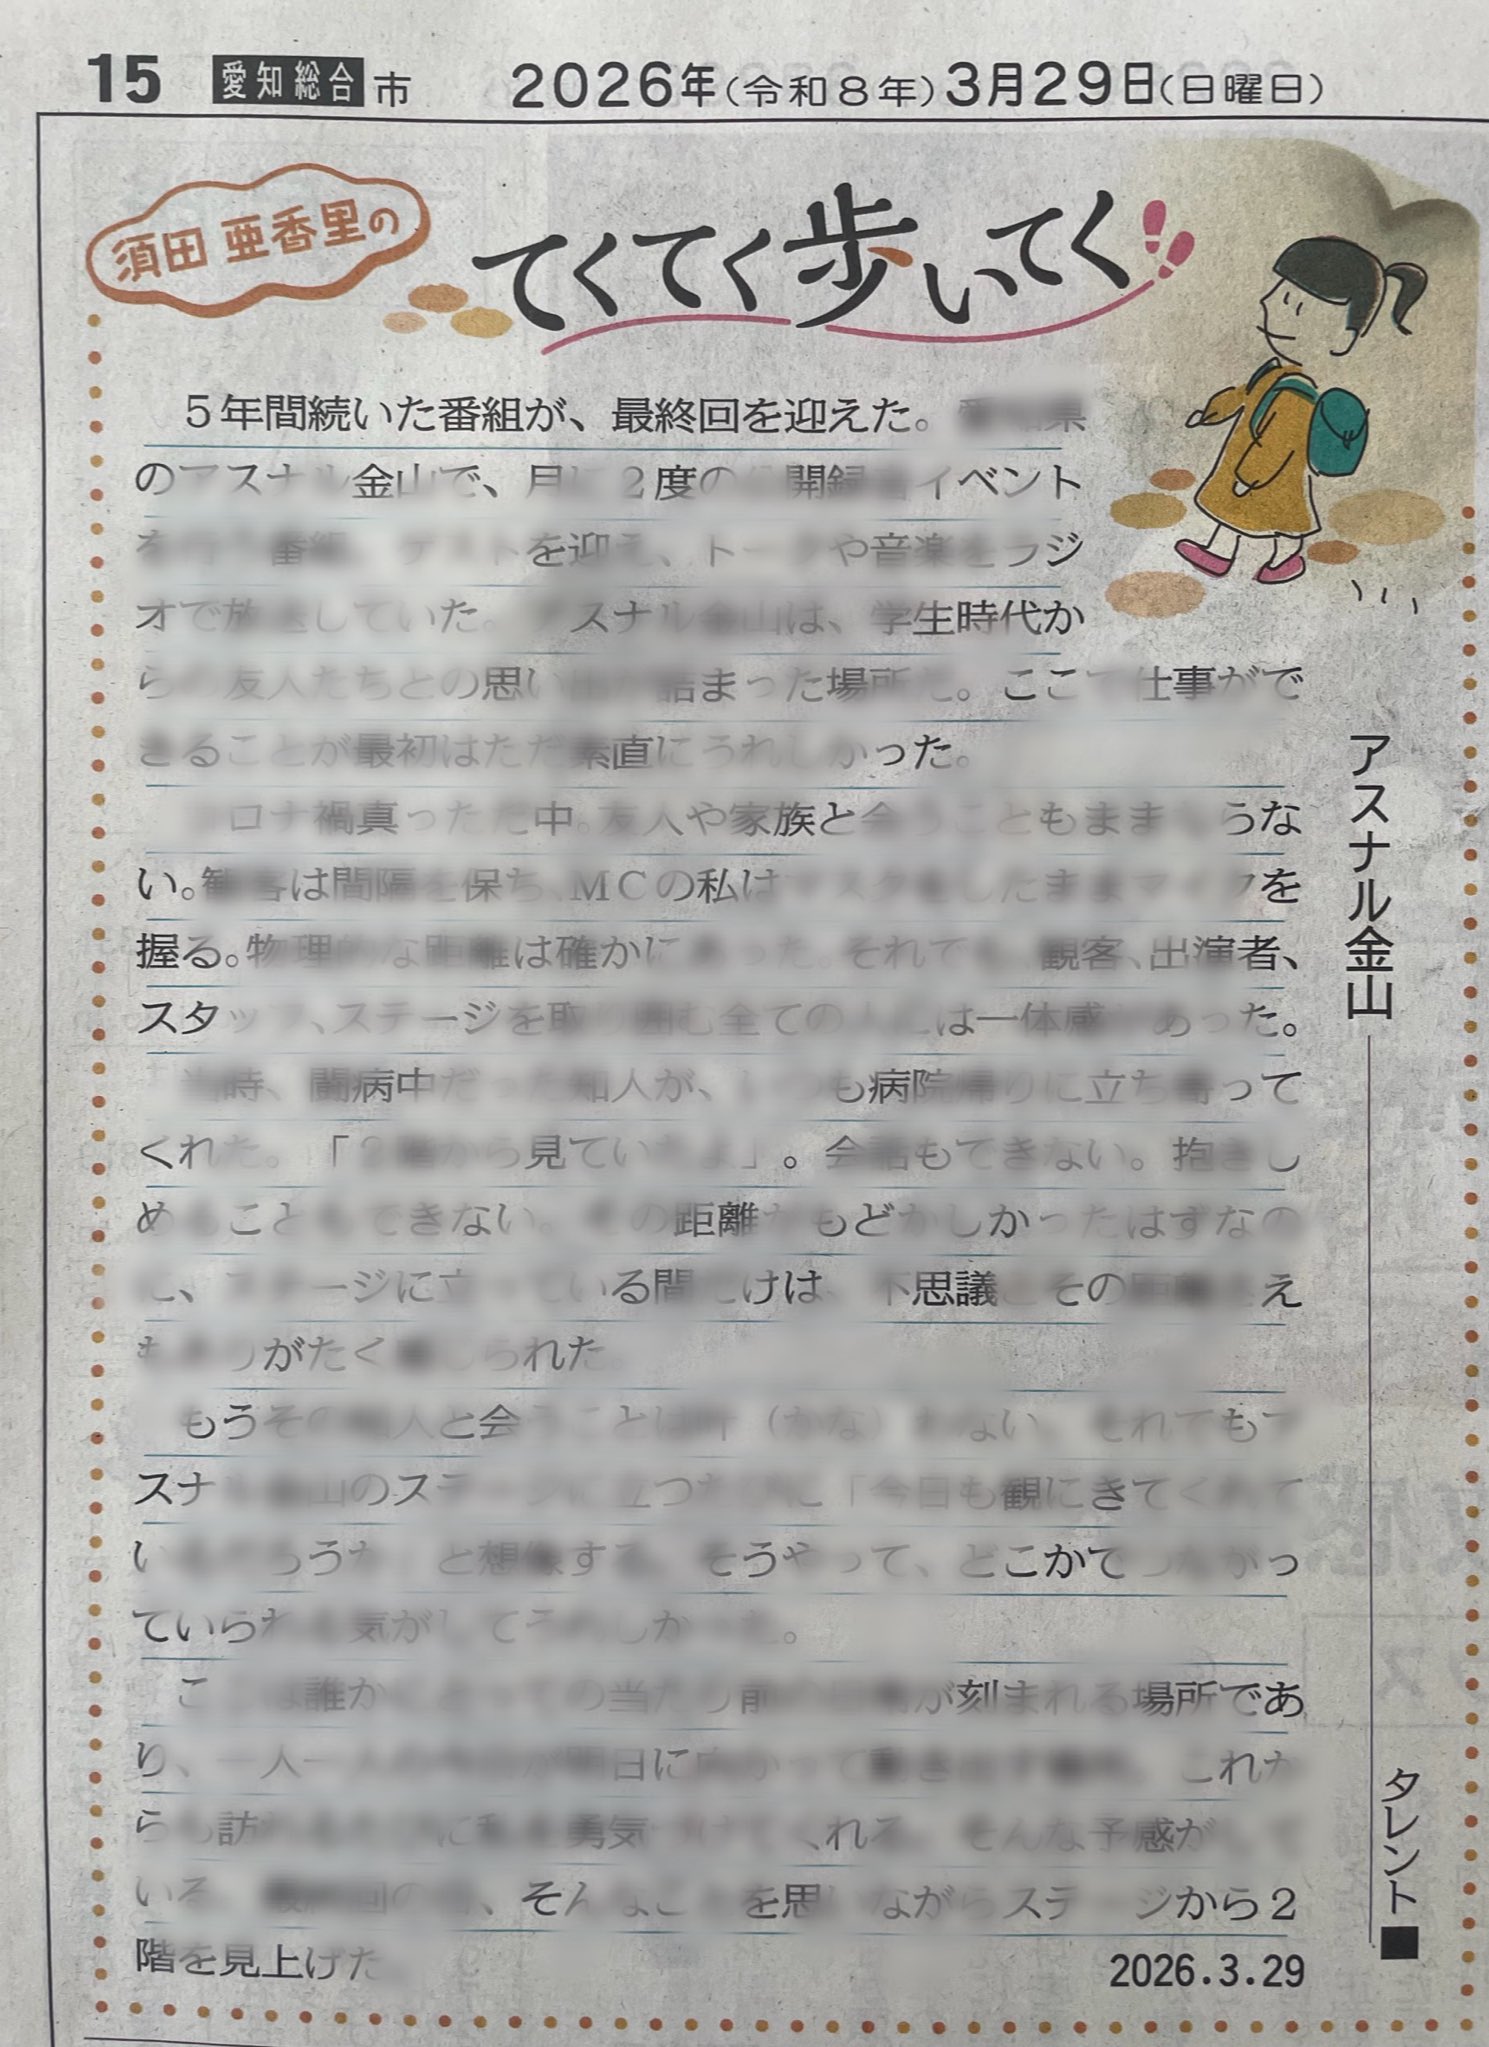 15 愛知総合 市 2026年(令和8年)3月29日(日曜日)
須田 亜香里の
てくてく歩いてく
アスナル金山
タレント■
5年間続いた番組が、最終回を迎えた。
のアスナル金山で、月に2度の公開録音イベント
番組。ゲストを迎え、トークや音楽をラジ
オで放送していた。アスナル金山は、学生時代か
らの友人たちとの思い出が詰まった場所だ。ここで仕事がで
きることが最初はただ素直にうれしかった。
コロナ禍真っただ中。友人や家族と会うこともままならな
い。観客は間隔を保ち、MCの私はマスクをしたままマイクを
握る。物理的な距離は確かにあった。それでも、観客、出演者、
スタッフ、ステージを取り囲む全ての人には一体感があった。
当時、闘病中だった知人が、いつも病院帰りに立ち寄って
くれた。「2階から見ていたよ」。会話もできない。抱きし
めることもできない。その距離がもどかしかったはずなの
に、ステージに立っている間だけは、不思議とその距離さえ
もありがたく感じられた。
もうその知人と会うことは叶(かな)わない。それでもア
スナル金山のステージに立つたびに「今日も観にきてくれて
いるだろうな」と想像する。そうやって、どこかでつながっ
ていられる気がしてうれしかった。
ここは誰かにとっての当たり前の が刻まれる場所であ
り、一人一人の が明日に向かって 。これか
らも訪れるたびに私を勇気づけてくれる。そんな予感がして
いる。最終回の 、そんなことを思いながらステージから2
階を見上げた。
2026.3.29